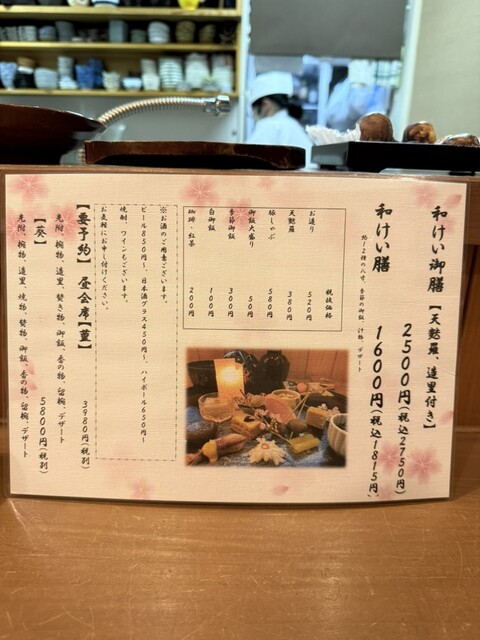 和けい御膳【天麩羅、造里付き】
2500円(税込2750円)
和けい膳 1600円(税込1815円)
約12種の八寸、季節の御飯、汁物、デザート
税抜価格
お造り 520円
天麩羅 380円
豚しゃぶ 580円
御飯大盛り 50円
季節御飯 300円
白御飯 100円
珈琲・紅茶 200円
※お酒のご用意もございます。
ビール850円〜、日本酒グラス450円〜、ハイボール650円〜
焼酎、ワインもございます。
お気軽にお申し付けください。
【要予約】昼会席【菫】 3980円(税別)
先附、椀物、造里、焚き物、御飯、香の物、留椀、デザート
【葵】 5800円(税別)
先附、椀物、造里、焼物、焚物、御飯、香の物、留椀、デザート